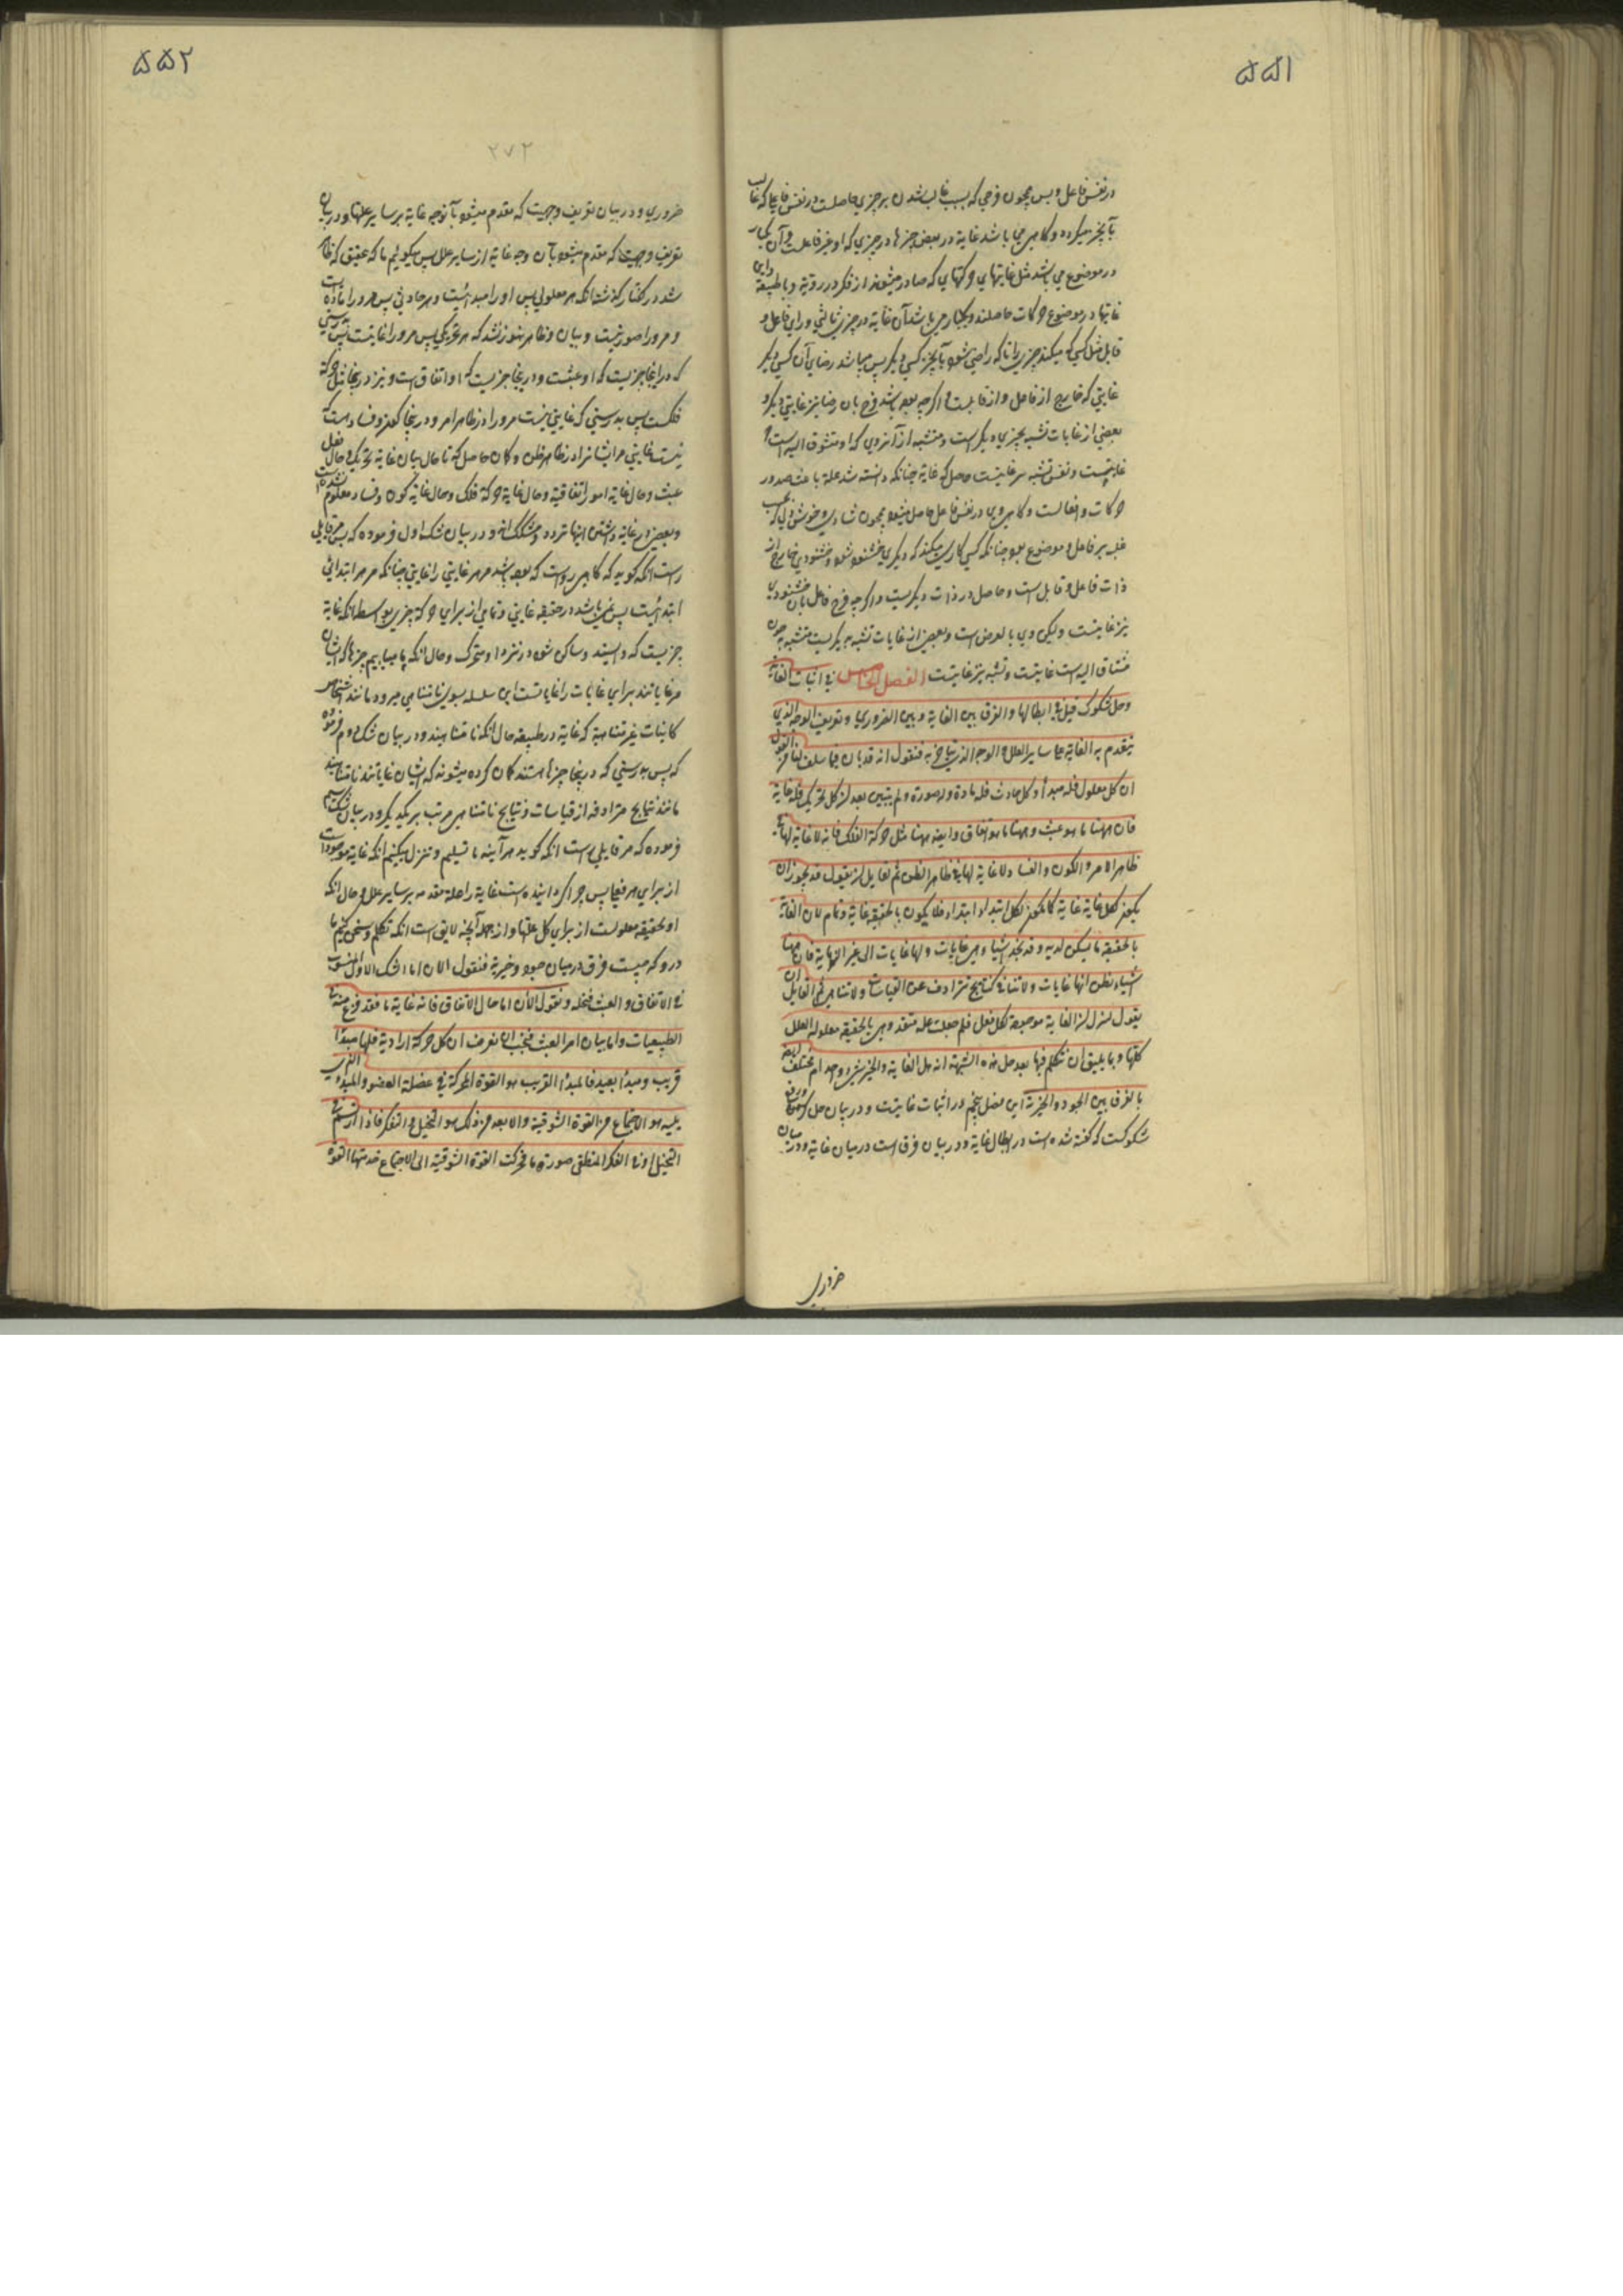 ۵۵۱
در نفس فاعل و بس همچون فرحی که بسبب غالب شدن بر چیزی حاصلست در نفس فاعل که غالب
بآنچیز میکردد و کاهی میباشد غایة در بعض چیزها در چیزی که او غیر فاعلست و آن یکبار
در موضوع می باشد مثل غایتهای حرکتهای که صادر میشوند از فکر و رویة و با طبیعة و این
غایتها در موضوع حرکات حاصلند و یکبار می باشد آن غایة در چیزی ثالثی ورای فاعل و
قابل مثل کسی که میکند چیزی را تا که راضی شود بآنچیز کسی دیگر پس میباشد رضای آن کسی دیگر
غایتی که خارج از فاعل و از قابلست و اگرچه بوده باشد فرح بان رضا نیز غایتی دیگر و
بعضی از غایات تشبه بچیزی دیگر است و متشبه از آنروی که او متشوق الیه است
غایتست و نفس تشبه نیز غایتست حاصل که غایة چنانکه دانسته شد علة باعث صدور
حرکات و افعالست و کاهی وی در نفس فاعل حاصل میشود همچون شادی و خوشی دل بسبب
غلبه بر فاعل و موضوع بود چنانکه کسی کاری میکند که دیگری خشنود شود و خشنودی خارج از
ذات فاعل و قابل است و حاصل در ذات دیگریست و اگرچه فرح فاعل بان خشنودی
نیز غایتست ولیکن وی بالعرض است و بعضی از غایات تشبه بدیگریست متشبه به چون
مشتاق الیه است غایتست و تشبه نیز غایتست الفصل الخامس فی اثبات الغایة
وحل شکوک قیل فی ابطالها والفرق بین الغایة وبین الضروری وتعریف الوجه الذی
یتقدم به الغایة علی سایر العلل والوجه الذی یتأخر به فنقول انه قد بان فیما سلف لنا من القول
ان کل معلول فله مبدأ وکل حادث فله مادة وله صورة ولم یتبین بعد ان کل تحریک فله غایة
فان ههنا ما هو عبث وههنا ما هو اتفاق وایضا ههنا مثل حرکة الفلک فانه لا غایة لها فی
ظاهر الامر والکون والفساد لا غایة لها فی ظاهر الظن ثم لقایل ان یقول قد یجوز ان
یکون لکل غایة غایة کما یکون لکل ابتداء ابتداء فلا یکون بالحقیقة غایة وتمام لان الغایة
بالحقیقة ما یسکن لدیه وقد نجد اشیاء وهی غایات ولها غایات الی غیر النهایة فان ههنا
اشیاء نظن انها غایات ولا تتناهی کنتایج تترادف عن القیاسات ولا تتناهی ثم لقایل ان
یقول لننزل ان الغایة موجودة لکل فعل فلم جعلت علة متقدمة وهی بالحقیقة معلولة العلل
کلها ومما یلیق ان نتکلم فیها بعد حل هذه الشبهة انه هل الغایة والخیر شیء واحد ام مختلف وایضا
ما الفرق بین الجود والخیریة این فصل پنجم در اثبات غایتست و در بیان حل کردن و رفع
شکوکست که گفته شده است در ابطال غایة و در بیان فرق است در میان غایة و در میان
ضروری
۵۵۲
۲۷۲
ضروری و در بیان تعریف وجهیست که مقدم میشود بآنوجه غایة بر سایر علتها و در بیان
تعریف وجهیست که مقدم میشود بآن وجه غایة از سایر علل پس میگوئیم ما که تحقیق که ظاهر
شد در گفتار گذشته انکه هر معلولی پس او را مبدائیست و هر حادثی پس مرورا ماده است
و مرورا صورتیست و بیان و ظاهر هنوز نشد که هر تحریکی پس مرورا غایتست پس بدرستی
که در اینجا چیزیست که او عبثست و در اینجا چیزیست که او اتفاق است و نیز در اینجا مثل حرکة
فلکست پس بدرستی که غایتی نیست مرورا در ظاهر امر و در اینجا کون و فساد است که
نیست غایتی مر ایشانرا در ظاهر ظن و گمان حاصل که تا حال بیان غایة تحریک و حال فعل
عبث و حال غایة امور اتفاقیة و حال غایة حرکة فلک و حال غایة کون و فساد معلوم نشده است
و بعضی در غایة داشتن اینها تردد و مشککند و در بیان شک اول فرموده که پس مر قایلی
راست انکه گوید که گاهی رواست که بوده باشد مر هر غایتی را غایتی چنانکه مر هر ابتدائی
ابتدائیست پس نمی باشد در حقیقة غایتی و تمامی از برای حرکة چیزی بواسطه انکه غایة
چیزیست که وایستد و ساکن شود در نزد او متحرک و حال انکه ما میابیم چیزها که ایشان
مر غایاتند برای غایات را غایاتست این سلسله بسوی نامتناهی میرود مانند اشخاص
کاینات غیر متناهیة که غایة در طبیعة حال انکه نامتناهیند و در بیان شک دوم فرموده
که پس بدرستی که در اینجا چیزها هستند گمان کرده میشوند که ایشان غایاتند نامتناهیند
مانند نتایج مترادفه از قیاسات و نتایج نامتناهی مرتب بر یکدیگر و در بیان شک سیم
فرموده که مر قایلی راست انکه گوید هر آینه ما تسلیم و تنزل میکنیم انکه غایة موجود است
از برای هر فعلی پس چرا گردانیده است غایة را علة مقدمه بر سایر علل و حال انکه
او بحقیقة معلولست از برای کل علتها و از جمله آنچه لایق است انکه تکلم و سخن کنیم ما
درو که چیست فرق در میان جود و خیریة فنقول الان اما الشک الاول المنسوب
فی الاتفاق والعبث فنحله ونقول الآن اما حال الاتفاق فانه غایة ما فقد فرغ منه فی
الطبیعیات واما بیان امر العبث فیجب ان نعرف ان کل حرکة ارادیة فلها مبدأ
قریب ومبدأ بعید فالمبدأ القریب هو القوة المحرکة فی عضلة العضو والمبدء الذی
یلیه هو الاجماع من القوة الشوقیة والابعد من ذلک هو التخیل او التفکر فاذا ارتسم فی
التخیل او فی الفکر المنطقی صورة ما فحرکت القوة الشوقیة الی الاجماع خدمتها القوة